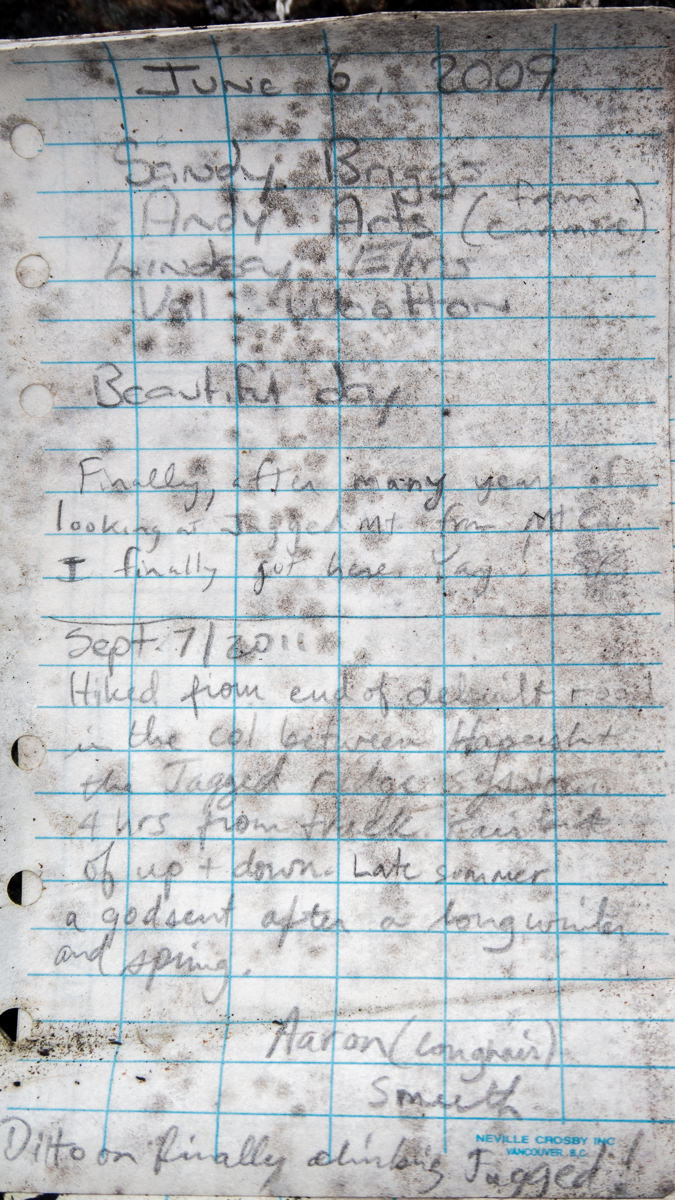 June 6, 2009
Sandy Briggs
Andy Arts (from
Lindsay Elms
Val Wootton
Beautiful day
Finally, after many years of
looking at Jagged Mt from Mt
I finally got here. Yay!
Sept. 7/2011
Hiked from end of debuilt road
in the col between Hapush +
the Jagged ridge system.
4 hrs from truck. Fair bit
of up + down. Late summer
a godsent after a long winter
and spring.
Aaron (longhair)
Smeeth
NEVILLE CROSBY INC
VANCOUVER, B.C.
Ditto on finally climbing Jagged!